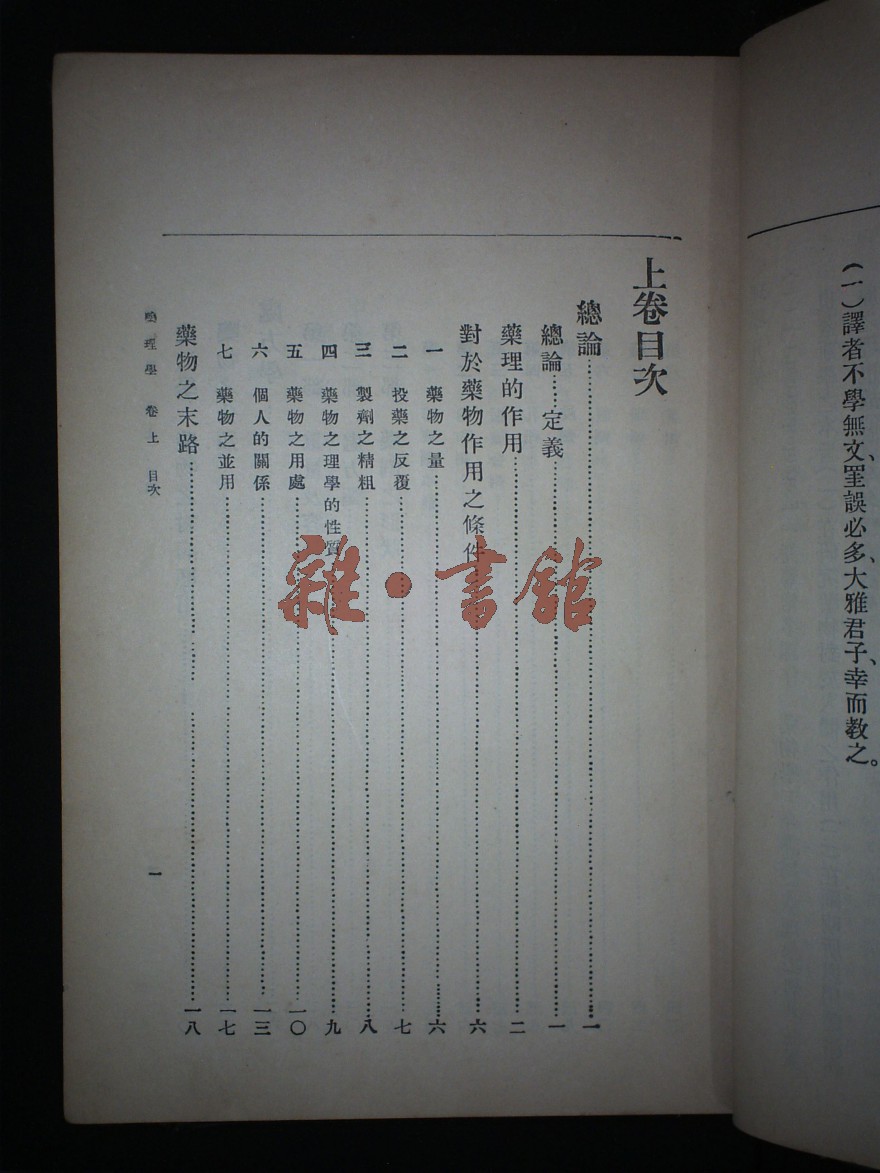 (一)譯者不學無文、罣誤必多、大雅君子、幸而教之。
上卷目次
總論……一
總論……定義……一
藥理的作用……二
對於藥物作用之條件……六
一 藥物之量……六
二 投藥之反覆……七
三 製劑之精粗……八
四 藥物之理學的性質……九
五 藥物之用處……一〇
六 個人的關係……一三
七 藥物之並用……一七
藥物之末路……一八
藥理學 卷上 目次
一
雜·書館